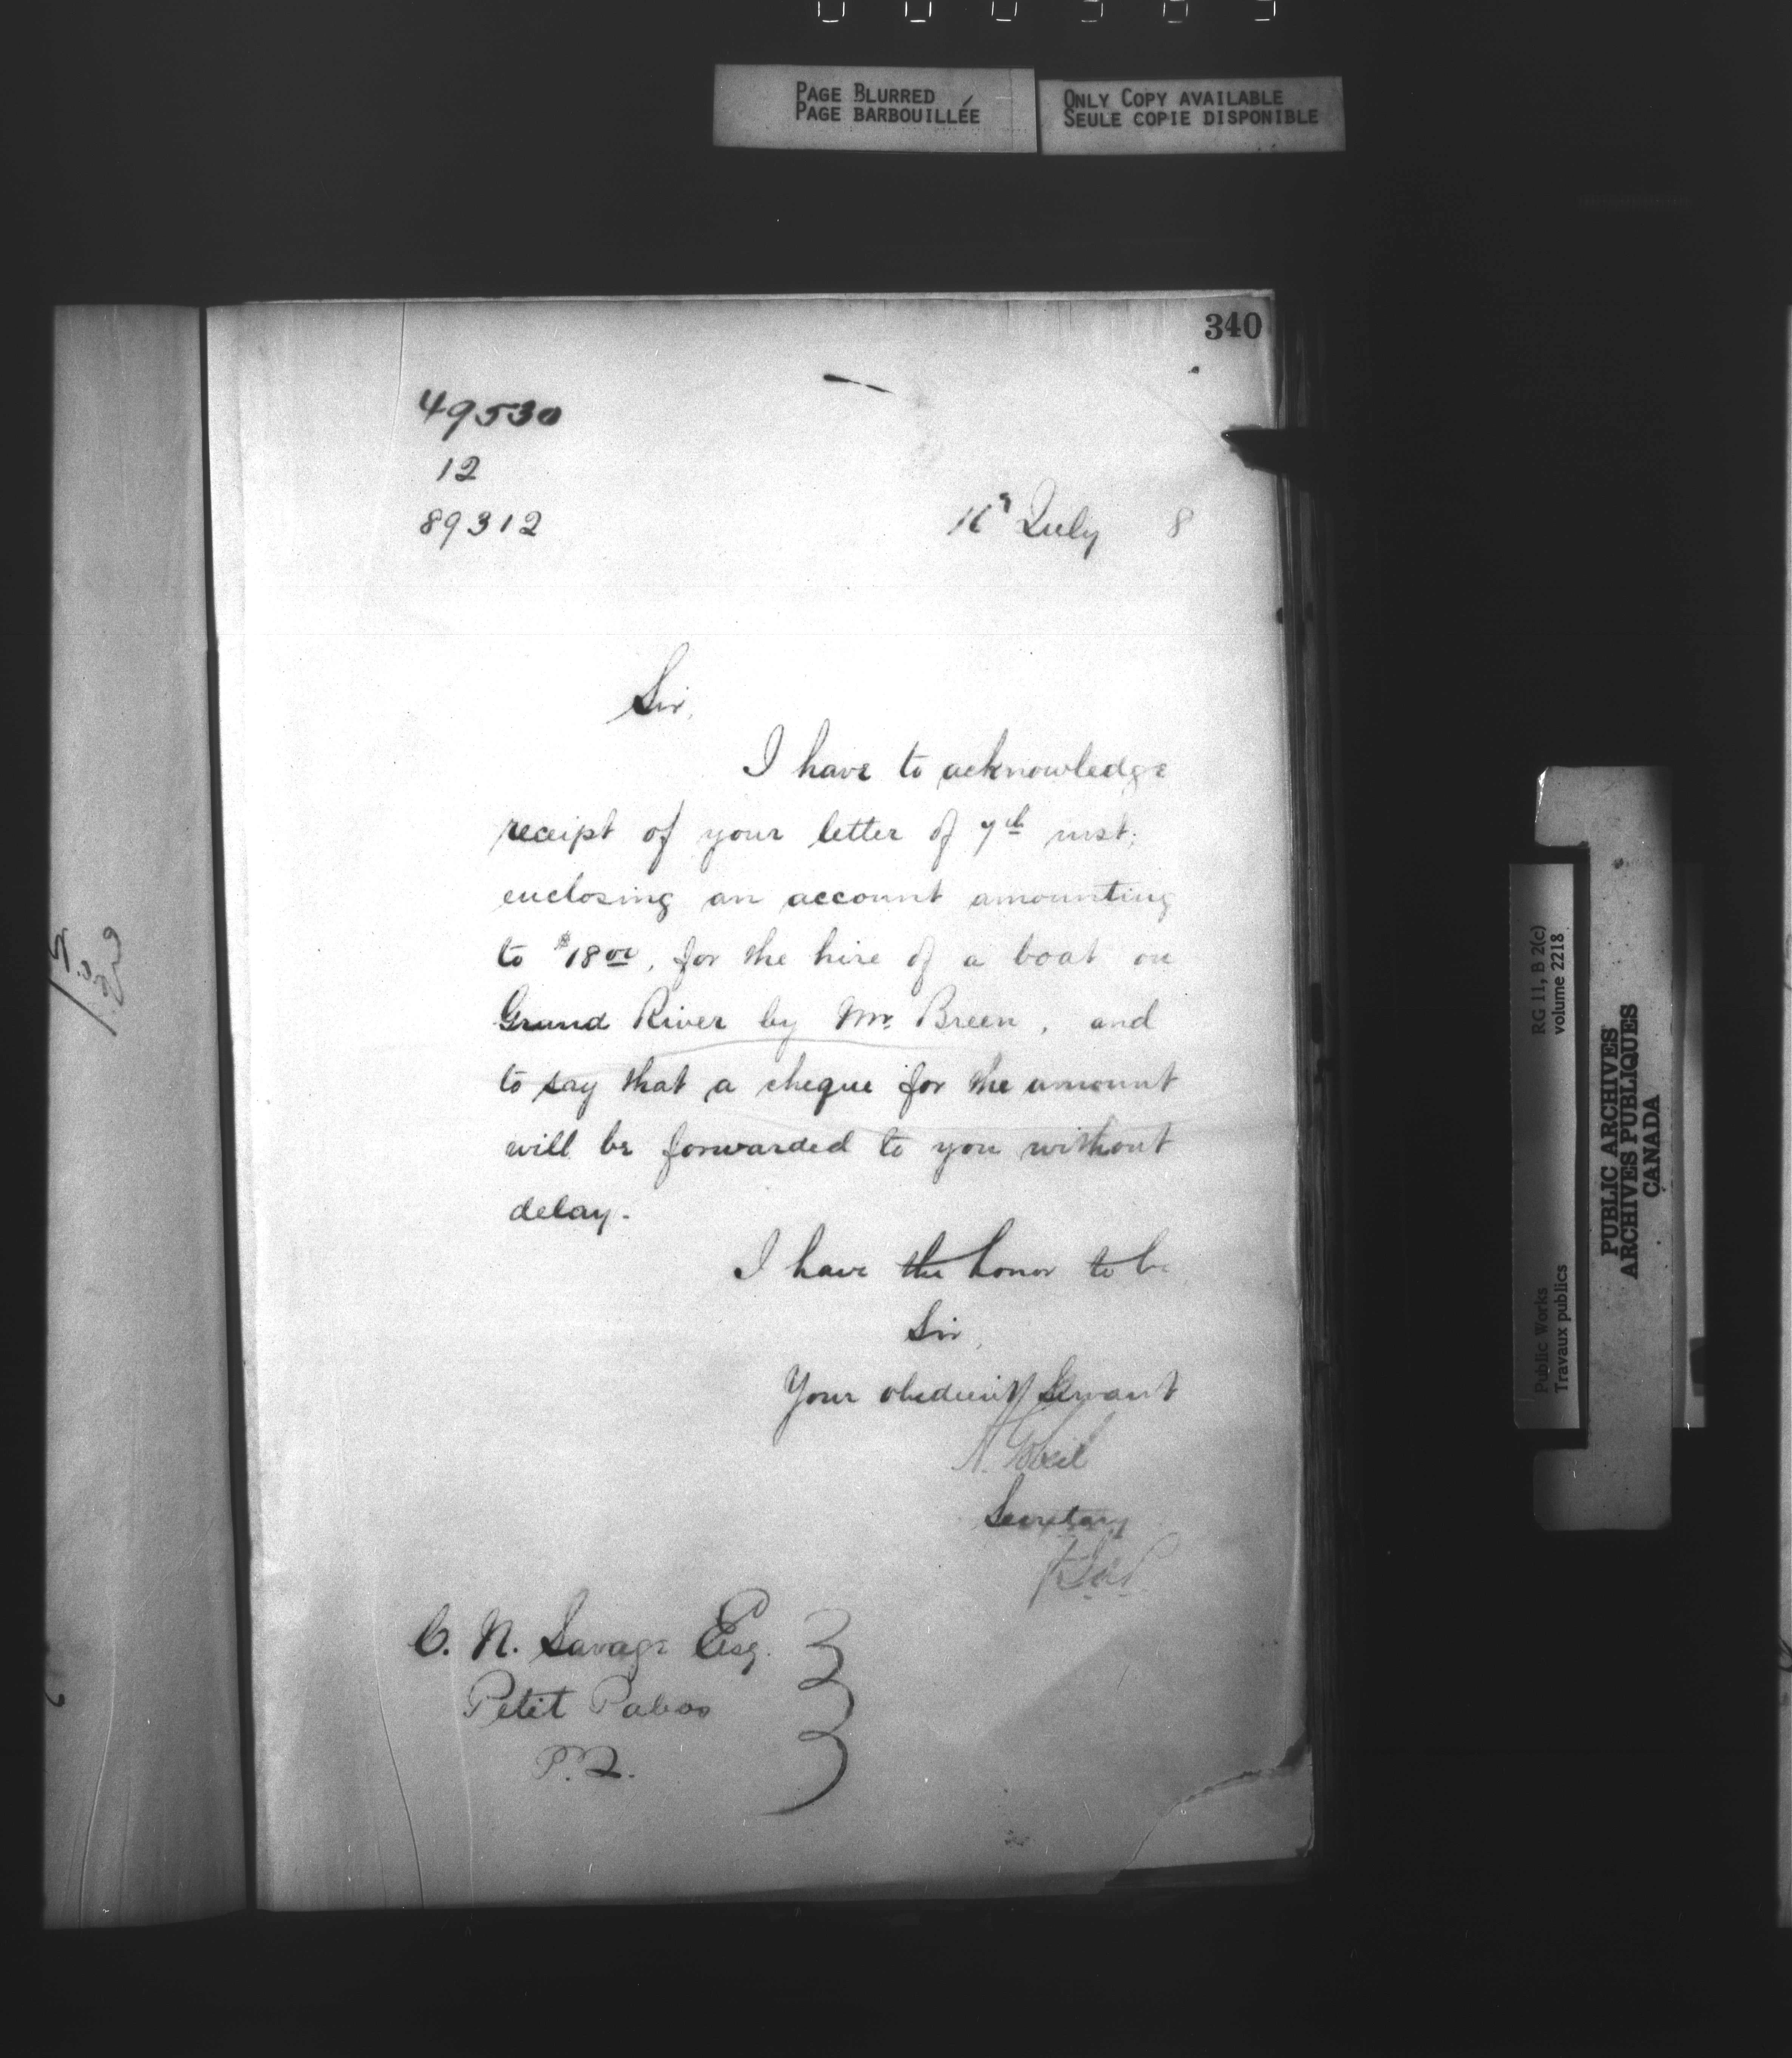 PAGE BLURRED
PAGE BARBOUILLÉE
ONLY COPY AVAILABLE
SEULE COPIE DISPONIBLE
340
49530
12
89312
July 8
Sir,
I have to acknowledge
receipt of your letter of 7th inst,
enclosing an account amounting
to $18 00, for the hire of a boat on
Grand River by Mr. Breen, and
to say that a cheque for the amount
will be forwarded to you without
delay.
I have the honor to be
Sir,
Your obedient Servant
A. Gobeil
Secretary
C. N. Savage Esq.
Petit Pabos
P.Q.
RG 11, B 2(c)
volume 2218
Public Works
Travaux publics
PUBLIC ARCHIVES
ARCHIVES PUBLIQUES
CANADA